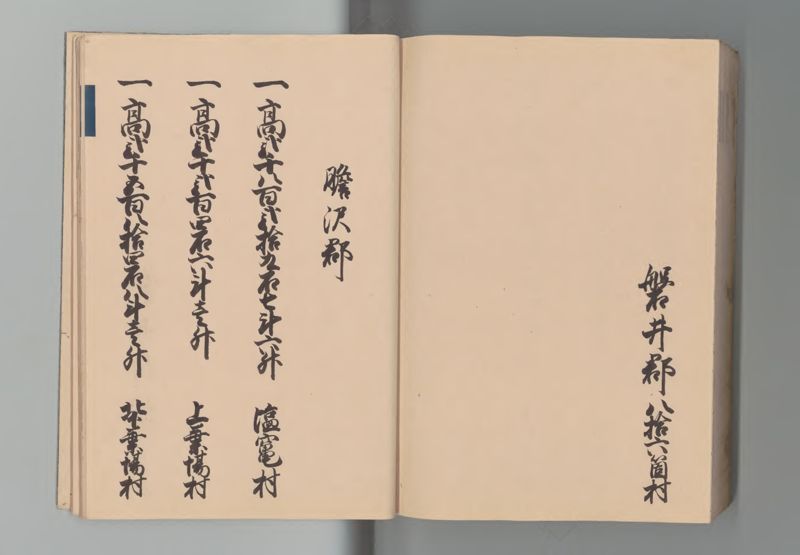 磐井郡八拾六箇村
膽沢郡
一高弐千八百弐拾五石七斗六升 塩竃村
一高弐千弐百四石六斗壱升 上葉場村
一高弐千五百八拾四石八斗壱升 北下葉場村